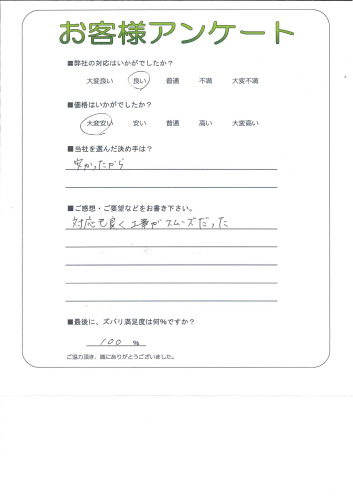 お客様アンケート
■弊社の対応はいかがでしたか?
大変良い 良い 普通 不満 大変不満
■価格はいかがでしたか?
大変安い 安い 普通 高い 大変高い
■当社を選んだ決め手は?
安かったから
■ご感想・ご要望などをお書き下さい。
対応も良く工事がスムーズだった
■最後に、ズバリ満足度は何%ですか?
100 %
ご協力頂き、誠にありがとうございました。